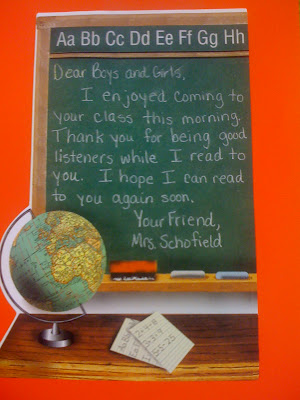 Aa Bb Cc Dd Ee Ff Gg Hh
Dear Boys and Girls,
I enjoyed coming to
your class this morning.
Thank you for being good
listeners while I read to
you. I hope I can read
to you again soon.
Your Friend,
Mrs. Schofield